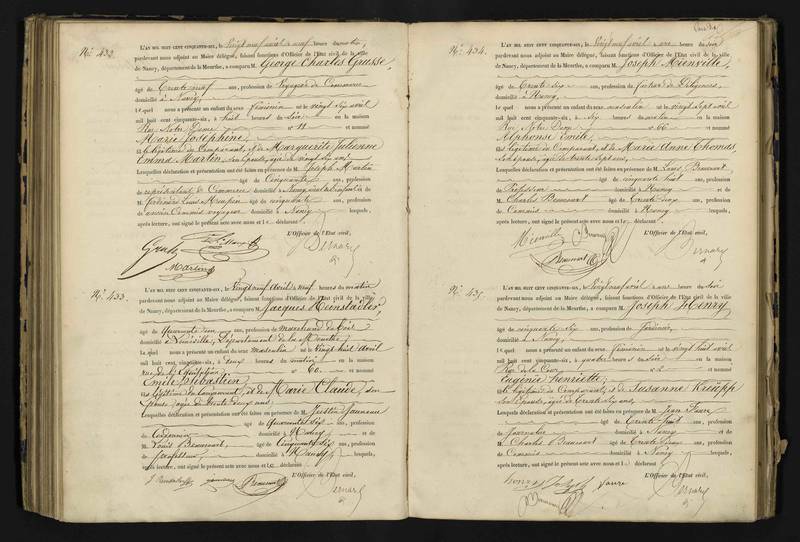 No. 432.
L'AN MIL HUIT CENT CINQUANTE-SIX, le Vingt neuf avril à neuf heures du matin,
pardevant nous adjoint au Maire délégué, faisant fonctions d'Officier de l'Etat civil de la ville
de Nancy, département de la Meurthe, a comparu M. George Charles
âgé de Trente neuf ans, profession de Voyageur de Commerce
domicilié à Nancy,
lequel nous a présenté un enfant du sexe féminin né le vingt six avril
mil huit cent cinquante-six, à huit heures du soir en la maison
Rue Notre Dame n° 11 et nommé
Marie Joséphine,
fille légitime du Comparant, et de Marguerite Julienne
Emma Martin, son épouse, âgée de vingt six ans.
Lesquelles déclaration et présentation ont été faites en présence de M. Joseph Martin
âgé de Cinquante ans, profession
de représentant de Commerce domicilié à Nancy, et de
M. Louis âgé de cinquante ans, profession
de ancien Commis voyageur domicilié à Nancy lesquels,
après lecture, ont signé le présent acte avec nous et le déclarant
L'Officier de l'Etat civil,
Martin
Bernard
No. 433.
L'AN MIL HUIT CENT CINQUANTE-SIX, le Vingt neuf Avril à neuf heures du matin
pardevant nous adjoint au Maire délégué, faisant fonctions d'Officier de l'Etat civil de la ville
de Nancy, département de la Meurthe, a comparu M. Jacques
âgé de Quarante ans, profession de Marchand de bois
domicilié à Lunéville, Département de la Meurthe,
lequel nous a présenté un enfant du sexe masculin né le Vingt huit Avril
mil huit cent cinquante-six, à deux heures du matin en la maison
rue de l'Equitation, n° 60 et nommé
Emile Sébastien,
fils légitime du Comparant, et de Marie Claude, son
épouse, âgée de trente deux ans.
Lesquelles déclaration et présentation ont été faites en présence de M. Justin
âgé de Quarante six ans, profession
de Cordonnier domicilié à Nancy et de
M. Louis Beaucourt, âgé de Cinquante six ans, profession
de professeur, domicilié à Nancy, lesquels,
après lecture, ont signé le présent acte avec nous et le déclarant
L'Officier de l'Etat civil,
Bernard
No. 434.
L'AN MIL HUIT CENT CINQUANTE-SIX, le Vingt neuf avril à une heure du soir
pardevant nous adjoint au Maire délégué, faisant fonctions d'Officier de l'Etat civil de la ville
de Nancy, département de la Meurthe, a comparu M. Joseph Mienville,
âgé de Trente six ans, profession de facteur de Diligences,
domicilié à Nancy,
lequel nous a présenté un enfant du sexe masculin né le vingt sept avril
mil huit cent cinquante-six, à six heures du matin en la maison
Rue Notre Dame n° 66 et nommé
Alphonse Emile,
fils légitime du Comparant, et de Marie Anne Thomas,
son épouse, âgée de trente sept ans,
Lesquelles déclaration et présentation ont été faites en présence de M. Louis Beaucourt,
âgé de cinquante huit ans, profession
de Professeur domicilié à Nancy et de
M. Charles Beaucourt âgé de Trente deux ans, profession
de Commis domicilié à Nancy lesquels,
après lecture, ont signé le présent acte avec nous et le déclarant
L'Officier de l'Etat civil,
Mienville
Beaucourt
Bernard
No. 435.
L'AN MIL HUIT CENT CINQUANTE-SIX, le Vingt neuf avril à une heure du Soir
pardevant nous adjoint au Maire délégué, faisant fonctions d'Officier de l'Etat civil de la ville
de Nancy, département de la Meurthe, a comparu M. Joseph Henry
âgé de cinquante six ans, profession de Jardinier,
domicilié à Nancy,
lequel nous a présenté un enfant du sexe féminin né le Vingt huit avril
mil huit cent cinquante-six, à quatre heures du soir en la maison
Rue de la Cour n° 2 et nommé
Eugénie Henriette,
fille légitime du Comparant, et de Susanne
son épouse, âgée de trente six ans,
Lesquelles déclaration et présentation ont été faites en présence de M. Jean Faure
âgé de Trente huit ans, profession
de Journalier domicilié à Nancy et de
M. Charles Beaucourt âgé de Trente deux ans, profession
de Commis domicilié à Nancy lesquels,
après lecture, ont signé le présent acte avec nous et le déclarant
L'Officier de l'Etat civil,
henry Joseph faure
Beaucourt
Bernard